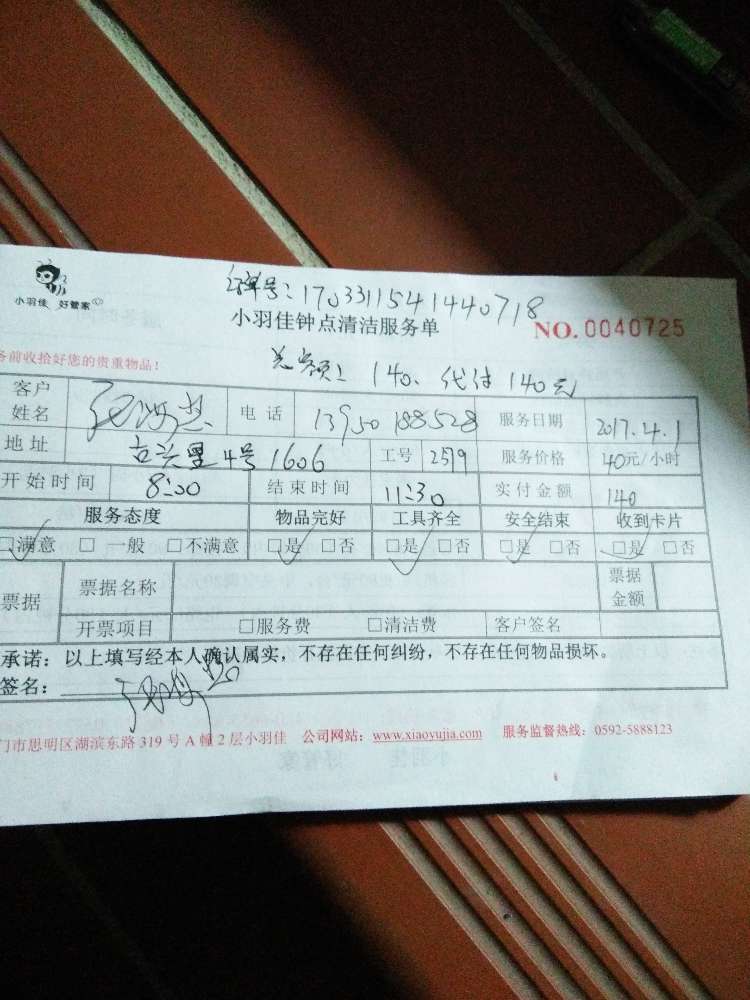 单号:1703311541440718
小羽佳 好管家
小羽佳钟点清洁服务单 NO.0040725
务前收拾好您的贵重物品!
总额: 140、代付140元
客户姓名 电话 13950188528 服务日期 2017.4.1
地址 古兴里4号1606 工号 2579 服务价格 40元/小时
开始时间 8:00 结束时间 11:30 实付金额 140
服务态度 物品完好 工具齐全 安全结束 收到卡片
☑满意 □一般 □不满意 ☑是 □否 ☑是 □否 ☑是 □否 ☑是 □否
票据 票据名称 票据金额
开票项目 □服务费 □清洁费 客户签名
承诺:以上填写经本人确认属实,不存在任何纠纷,不存在任何物品损坏。
签名:
门市思明区湖滨东路 319 号 A 幢 2 层小羽佳 公司网站:www.xiaoyujia.com 服务监督热线:0592-5888123